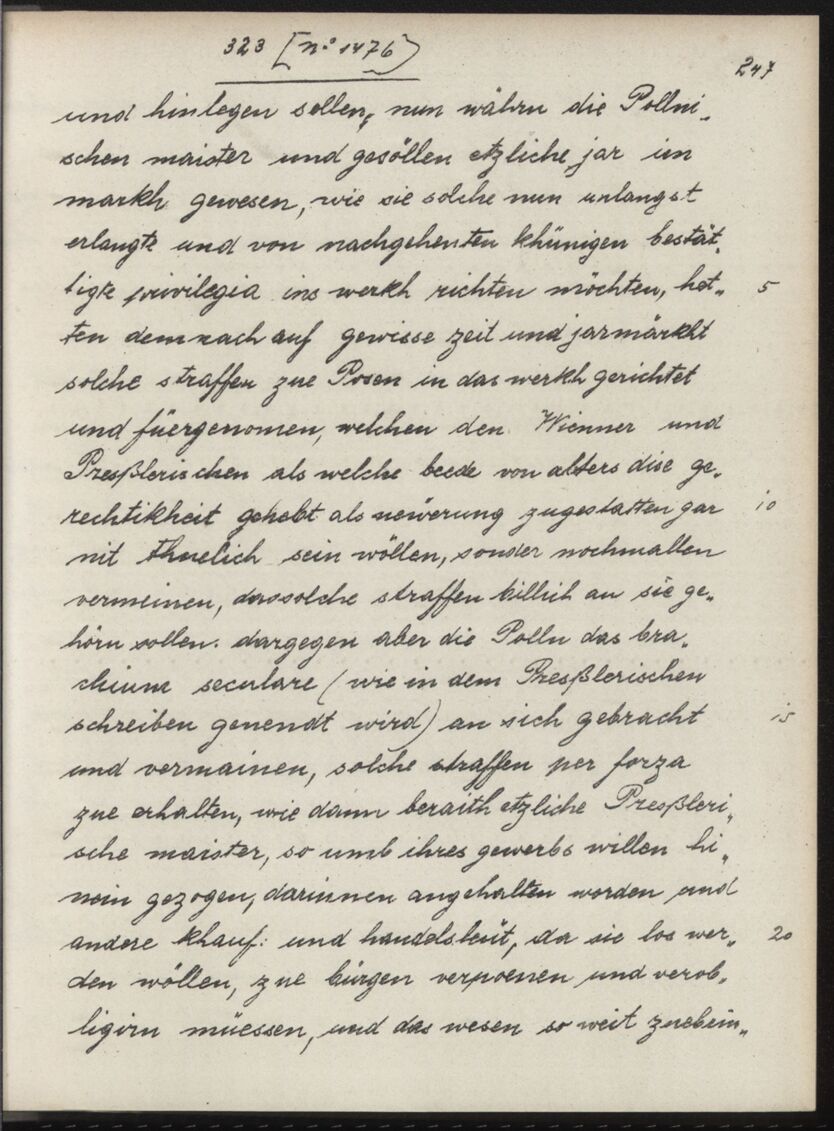 323 [n° 1476]
247
und hinlegen sollen, nun währn die Pollni„
schen maister und gesöllen etzliche jar im
markh gewesen, wie sie solche nun unlangst
erlangte und von nachgehenten khünigen bestät„
tigte privilegia ins werkh richten möchten, het„ 5
ten demnach auf gewisse zeit und jarmärkht
solche straffen zue Posen in das werkh gerichtet
und füergenomen, welchen den Wienner und
Preßlerischen als welche beede von alters dise ge„
rechtikheit gehebt als newerung zugestatten gar 10
nit thuelich sein wöllen, sonder nochmallen
vermeinen, das solche straffen billich an sie ge„
hörn sollen. dargegen aber die Polln das bra„
chium seculare (wie in dem Presßlerischen
schreiben genendt wird) an sich gebracht 15
und vermainen, solche straffen per forza
zue erhalten, wie dann beraith etzliche Presßleri„
sche maister, so umb ihres gewerbs willen hi„
nein gezogen, darinnen angehalten worden und
andere khauf: und handelsleüt, da sie los wer„ 20
den wöllen, zue bürgen verpoenen und verob„
ligirn müessen, und das wesen so weit zuebein„